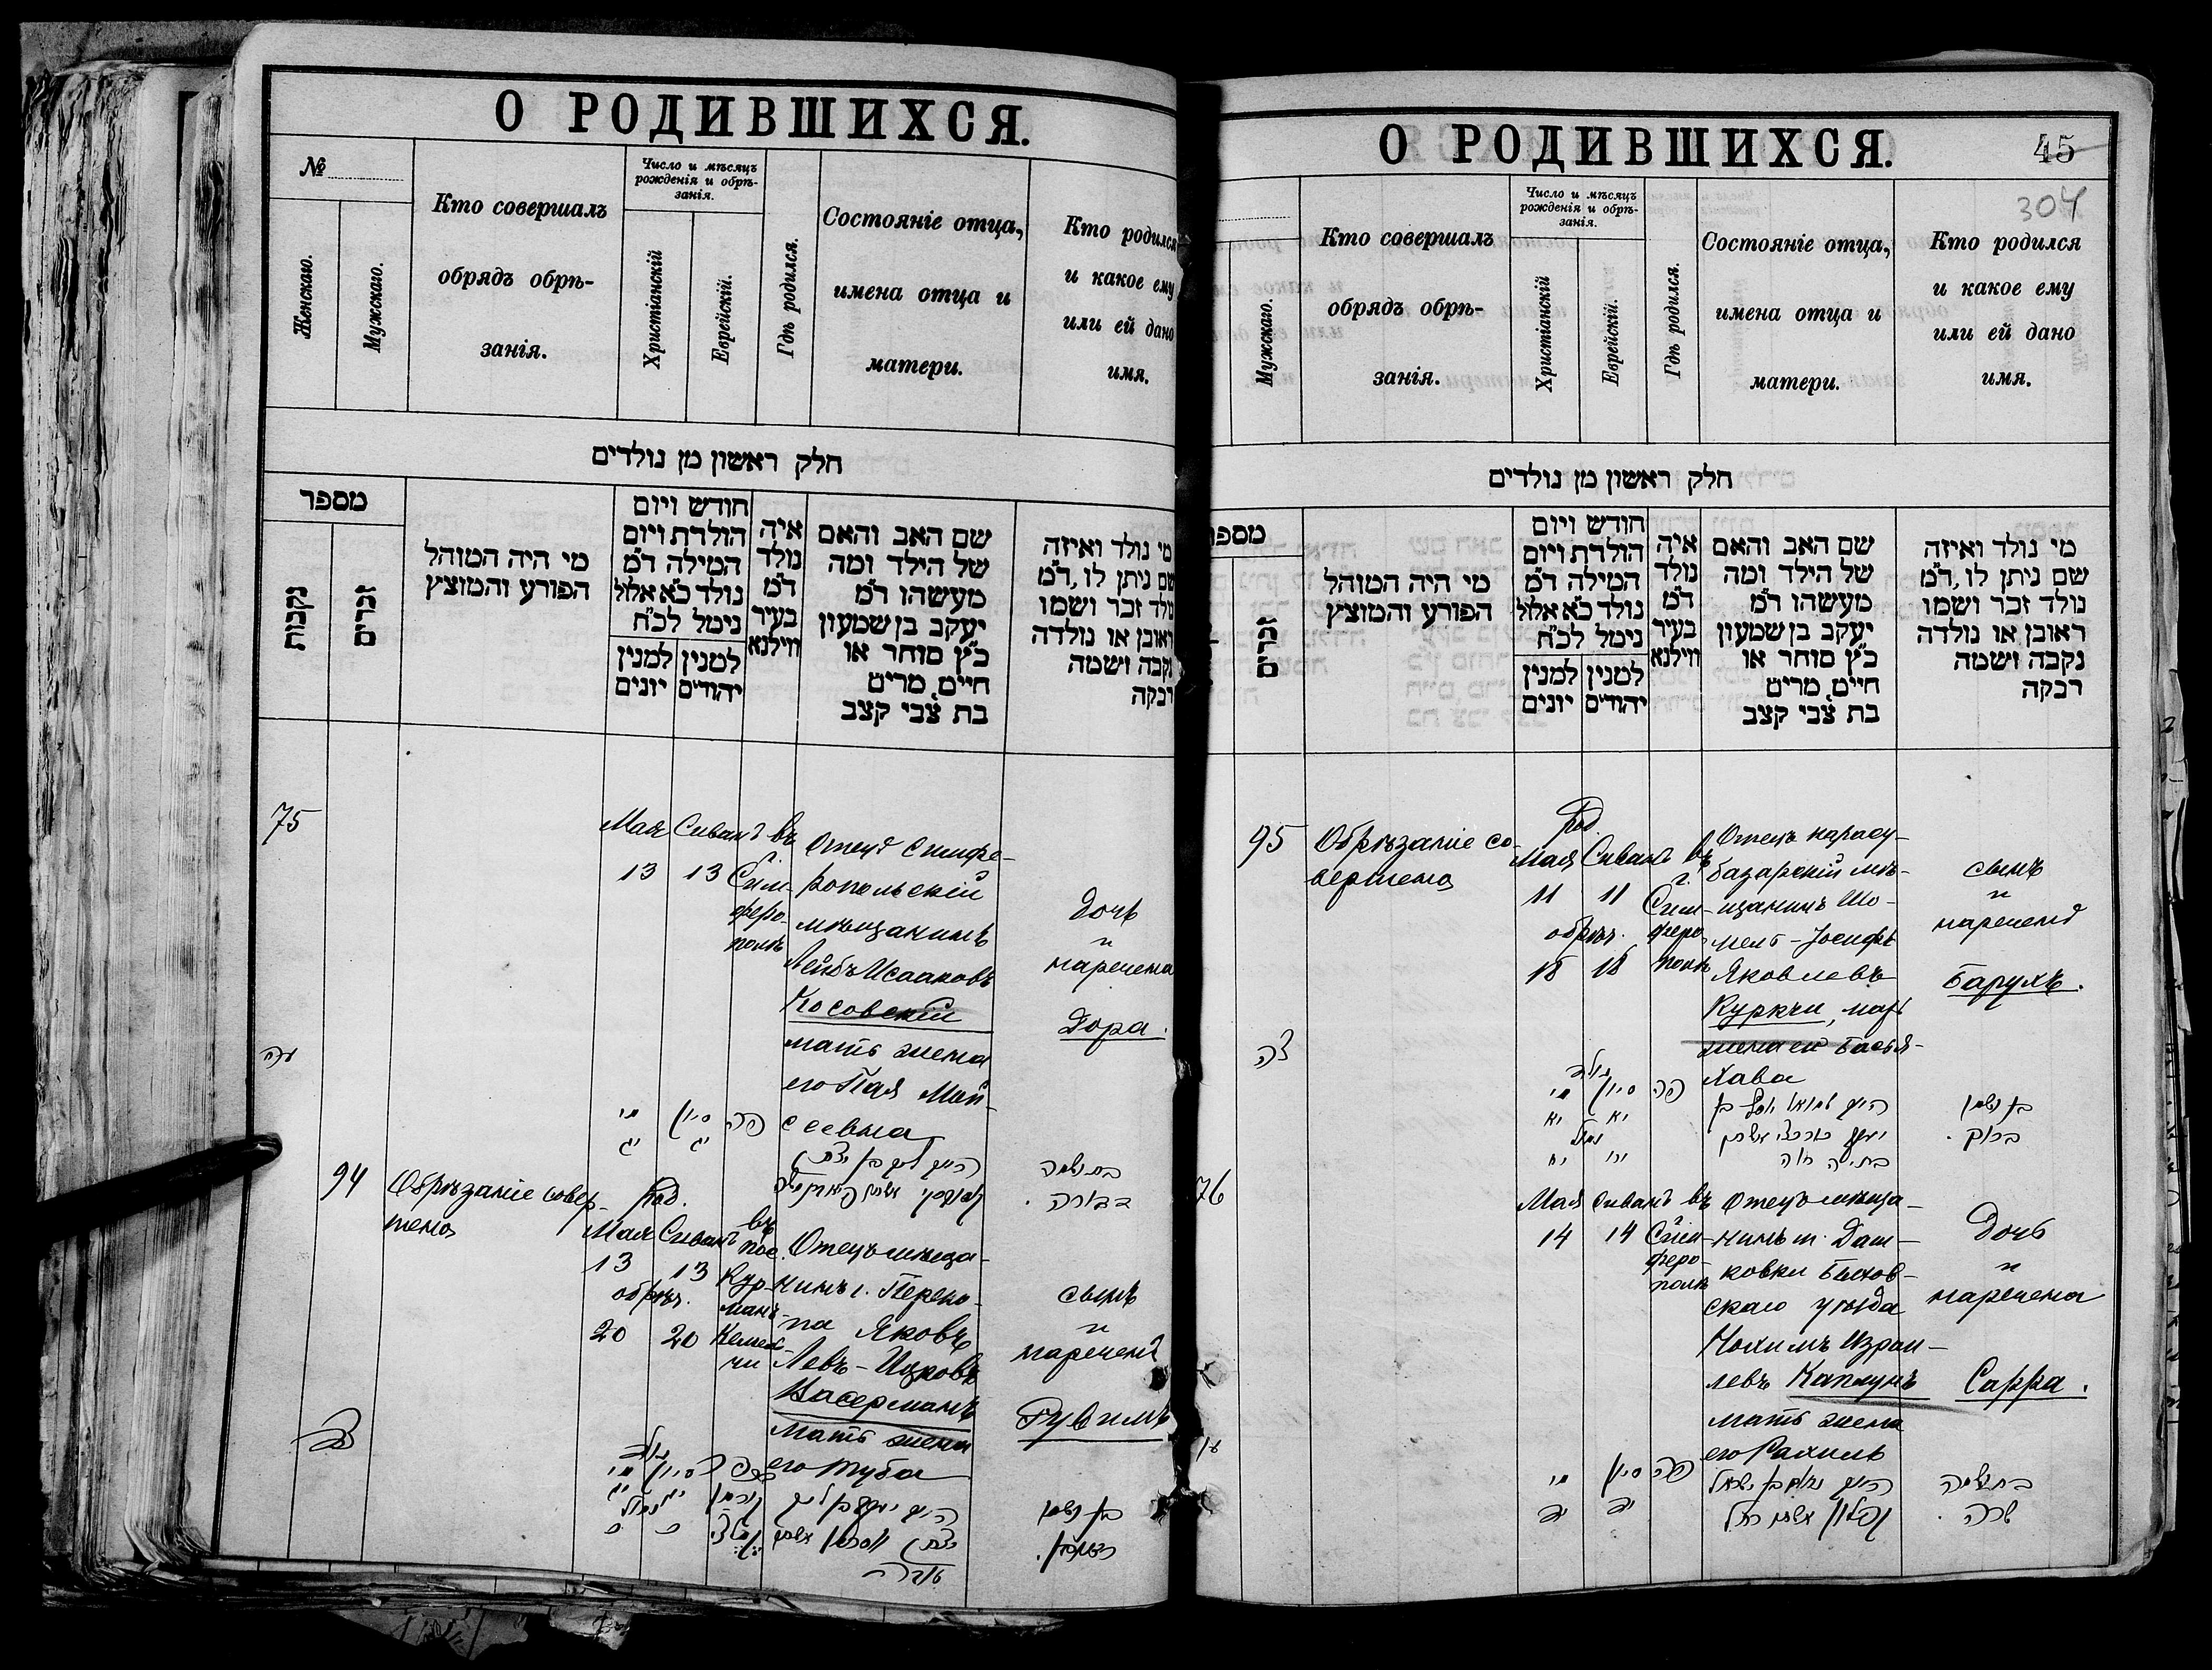 О РОДИВШИХСЯ.
№
Женскаго.
Мужскаго.
Кто совершалъ
обрядъ обрѣ-
занія.
Число и мѣсяцъ
рожденія и обрѣ-
занія.
Христіанскій
Еврейскій.
Гдѣ родился.
Состояніе отца,
имена отца и
матери.
Кто родился
и какое ему
или ей дано
имя.
חלק ראשון מן נולדים
מספר
נקבות
זכרים
מי היה המוהל
הפורע והמוצץ
חודש ויום
הולדת ויום
המילה ד״מ
נולד כ״א אלול
נימל לכ״ח
למנין יהודים
למנין יונים
איה
נולד
ד״מ
בעיר
ווילנא
שם האב והאם
של הילד ומה
מעשהו ד״מ
יעקב בן שמעון
כ״ץ סוחר או
חיים, מרים
בת צבי קצב
מי נולד ואיזה
שם ניתן לו, ד״מ
נולד זכר ושמו
ראובן או נולדה
נקבה ושמה
רבקה
75
Мая
13
Сиванъ
13
въ
г.
Сим-
феро-
полѣ
Отецъ Симфе-
ропольскій
мѣщанинъ
Лейбъ Исааковъ
Косовскій
мать жена
его Пая Мой-
сеевна
дочь
и
наречена
Дора.
עה
סיון
יג
יג
פה
94
Обрѣзаніе совер-
шено
Род.
Мая Сиванъ
13 13
обрѣз.
20 20
въ
пос.
Кур-
манъ
Кемель-
чи
Отецъ мѣща-
нинъ г. Переко-
па Яковъ
Левъ-Ицковъ
Васерманъ
мать жена
его Туба
сынъ
и
нареченъ
Рувимъ
צד
О РОДИВШИХСЯ.
45
304
Мужскаго.
Кто совершалъ
обрядъ обрѣ-
занія.
Число и мѣсяцъ
рожденія и обрѣ-
занія.
Христіанскій
Еврейскій.
Гдѣ родился.
Состояніе отца,
имена отца и
матери.
Кто родился
и какое ему
или ей дано
имя.
חלק ראשון מן נולדים
זכרים
מי היה המוהל
הפורע והמוצץ
חודש ויום
הולדת ויום
המילה ד״מ
נולד כ״א אלול
נימל לכ״ח
למנין יהודים
למנין יונים
איה
נולד
ד״מ
בעיר
ווילנא
שם האב והאם
של הילד ומה
מעשהו ד״מ
יעקב בן שמעון
כ״ץ סוחר או
חיים, מרים
בת צבי קצב
מי נולד ואיזה
שם ניתן לו, ד״מ
נולד זכר ושמו
ראובן או נולדה
נקבה ושמה
רבקה
95
Обрѣзаніе со-
вершено
Род.
Мая Сиванъ
11 11
обрѣз.
18 18
въ
г.
Сим-
феро-
полѣ
Отецъ карасу-
базарскій мѣ-
щанинъ Шо-
мель-Іосифъ
Яковлевъ
Куркчи, мать
жена ей Басья-
Хава
сынъ
и
нареченъ
Барухъ.
צה
סיון
יא יא
פה
בתיה חוה
ברוך.
76
Мая Сиванъ
14 14
въ
Сим-
феро-
полѣ
Отецъ мѣща-
нинъ м. Даш-
ковки Быхов-
скаго уѣзда
Нохимъ Израи-
левъ Каплунъ
мать жена
его Рахиль
Дочь
и
наречена
Сарра.
עו
סיון
יד יד
פה
שרה.